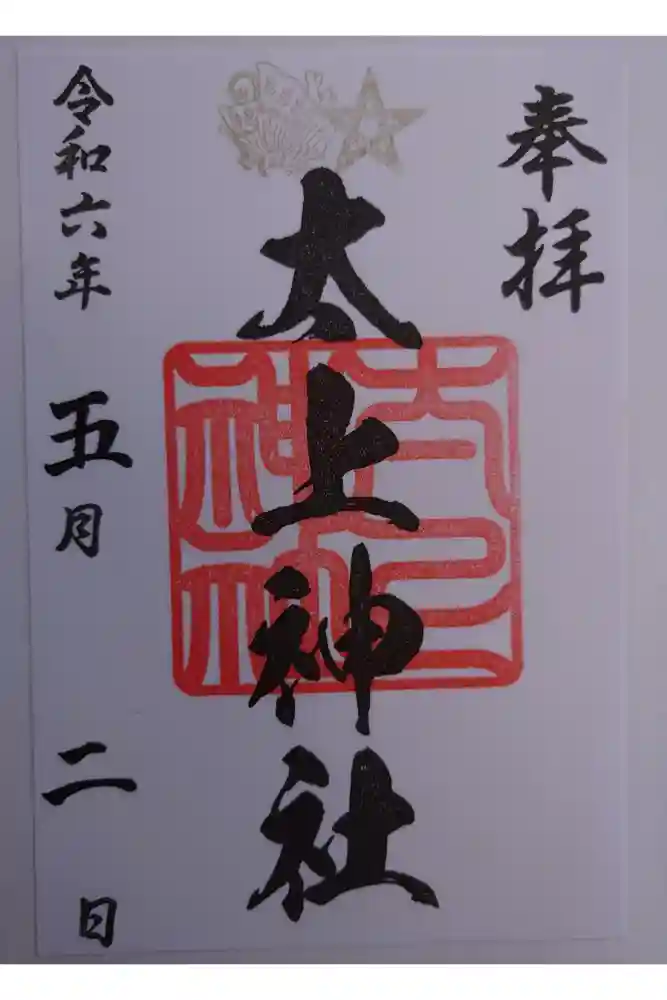 奉拝
太上神社
令和六年 五月 二日